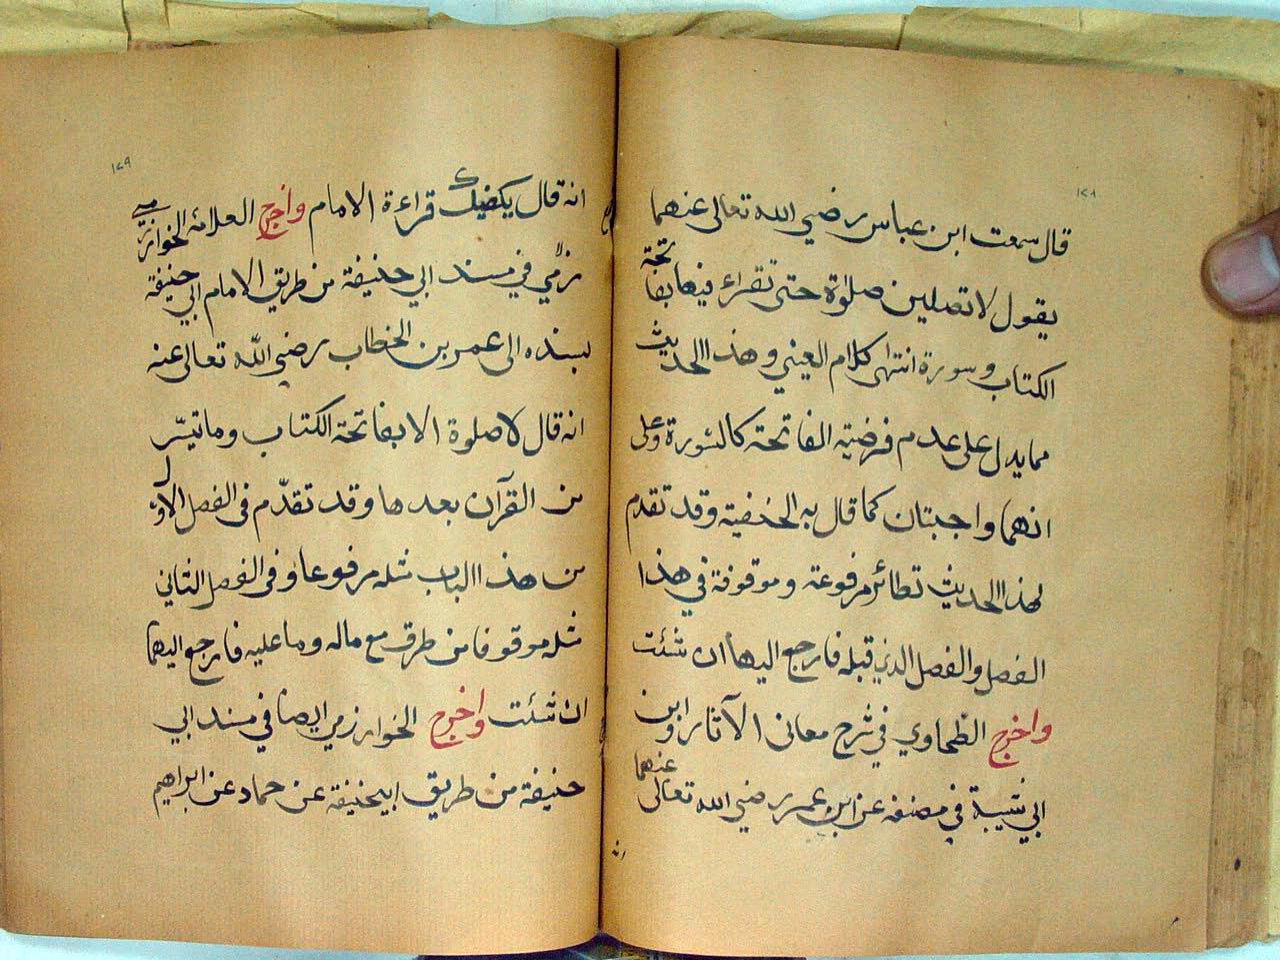 ١٢٨
قال سمعت ابن عباس رضي الله تعالى عنهما
يقول لا تصلين صلوة حتى تقراء فيها بفاتحة
الكتاب وسورة انتهى كلام العيني وهذا الحديث
مما يدل على عدم فرضية الفاتحة كالسورة وعلى
انهما واجبتان كما قال به الحنفية وقد تقدم
لهذا الحديث نظائر مرفوعة وموقوفة في هذا
الفصل والفصل الذي قبله فارجع اليها ان شئت
واخرج الطحاوي في شرح معاني الآثار وابن
ابي شيبة في مصنفه عن ابن عمر رضي الله تعالى عنهما
انه
١٢٩
انه قال يكفيك قراءة الامام واخرج العلامة الخوارزمي
رزمي في مسند ابي حنيفة من طريق الامام ابي حنيفة
بسنده الى عمر بن الخطاب رضي الله تعالى عنه
انه قال لا صلوة الا بفاتحة الكتاب وما تيسّر
من القرآن بعدها وقد تقدّم في الفصل الاول
من هذا الباب مثله مرفوعا وفي الفصل الثاني
مثله موقوفا من طرق مع ماله وما عليه فارجع اليهما
ان شئت واخرج الخوارزمي ايضا في مسند ابي
حنيفة من طريق ابيحنيفة عن حماد عن ابراهيم